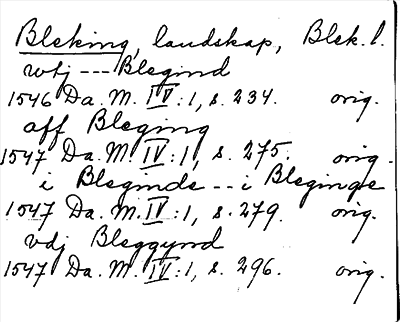 Bleking, landskap, Blek. l.
wtj --- Blegind
1546 Da. M. IV:1, s. 234. orig.
aff Bleging
1547 Da. M IV:1, s. 275. orig.
i Bleginde -- i Beginge
1547 Da. M. IV:1, s. 279. orig.
vdj Bleggynd
1547 Da. M. IV:1, s. 296. orig.